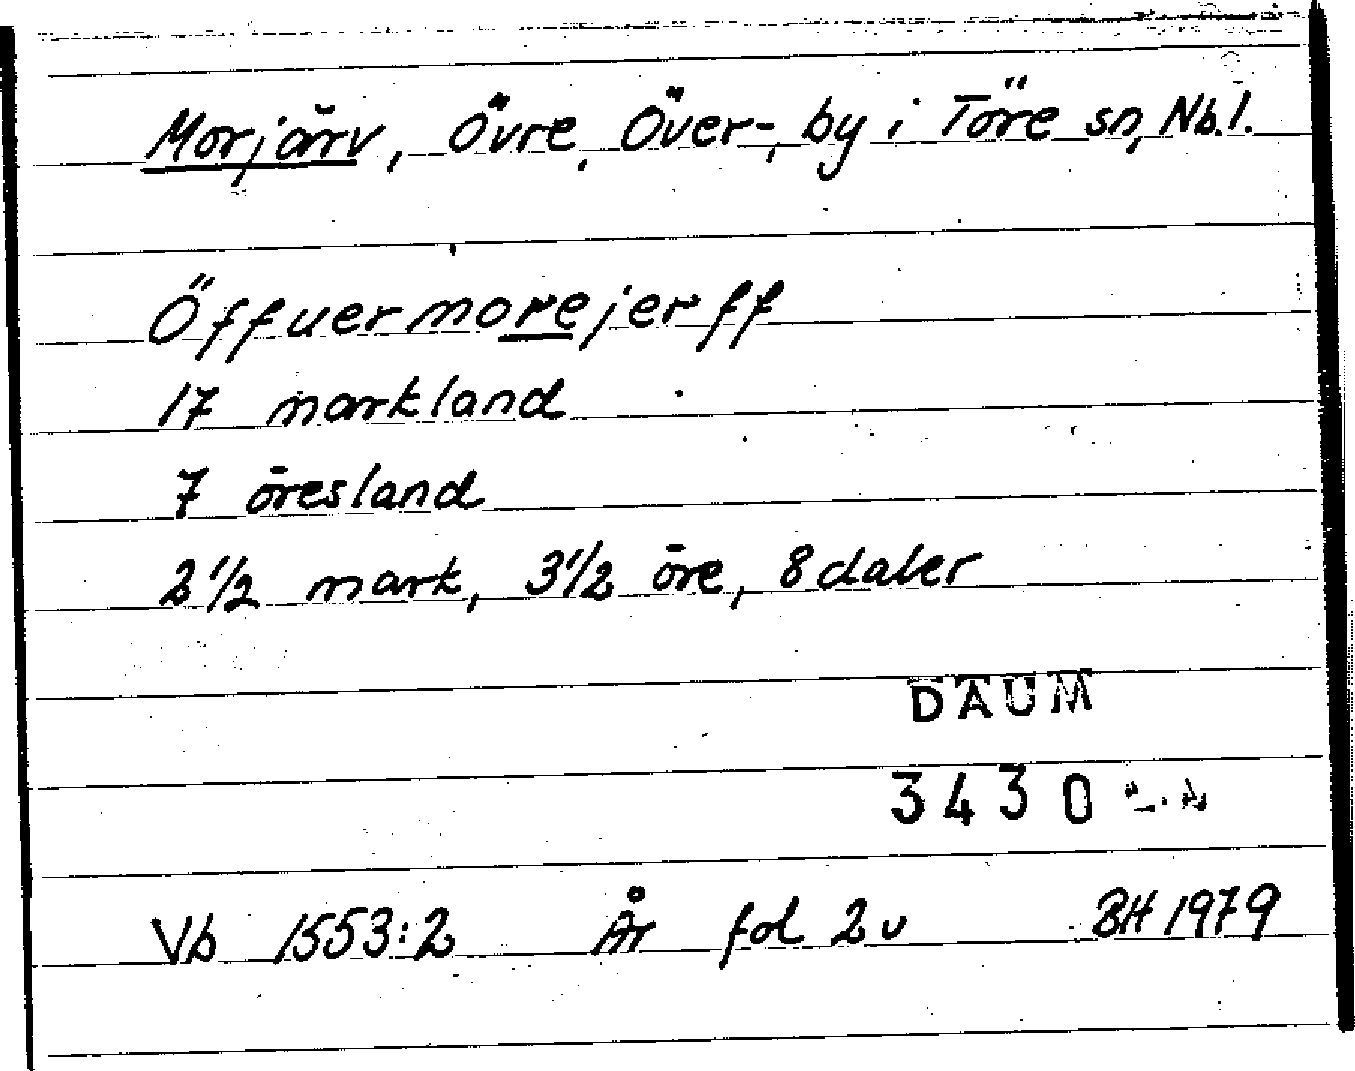 Morjärv, Övre, Över-, by i Töre sn, Nb.l.
Öffuermorejerff
17 markland
7 öresland
2 1/2 mark, 3 1/2 öre, 8 daler
DAUM
3430
Vb 1553:2 År fol 2v BH 1979